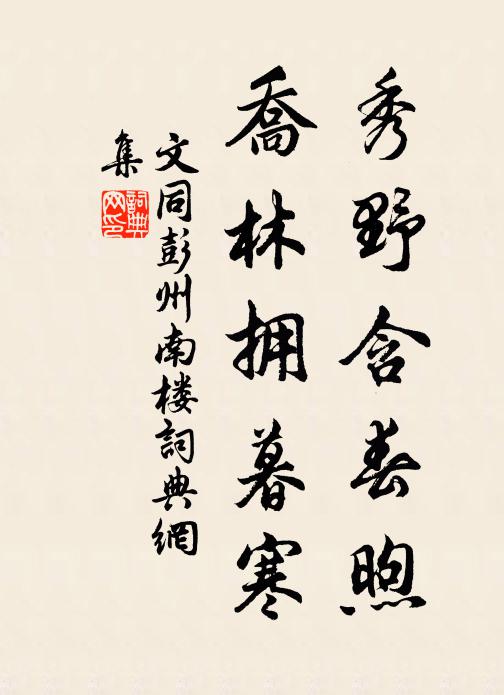 秀野含春煦
喬林拥暮寒
文同彭州南楼詞典網
集
詞典
网印